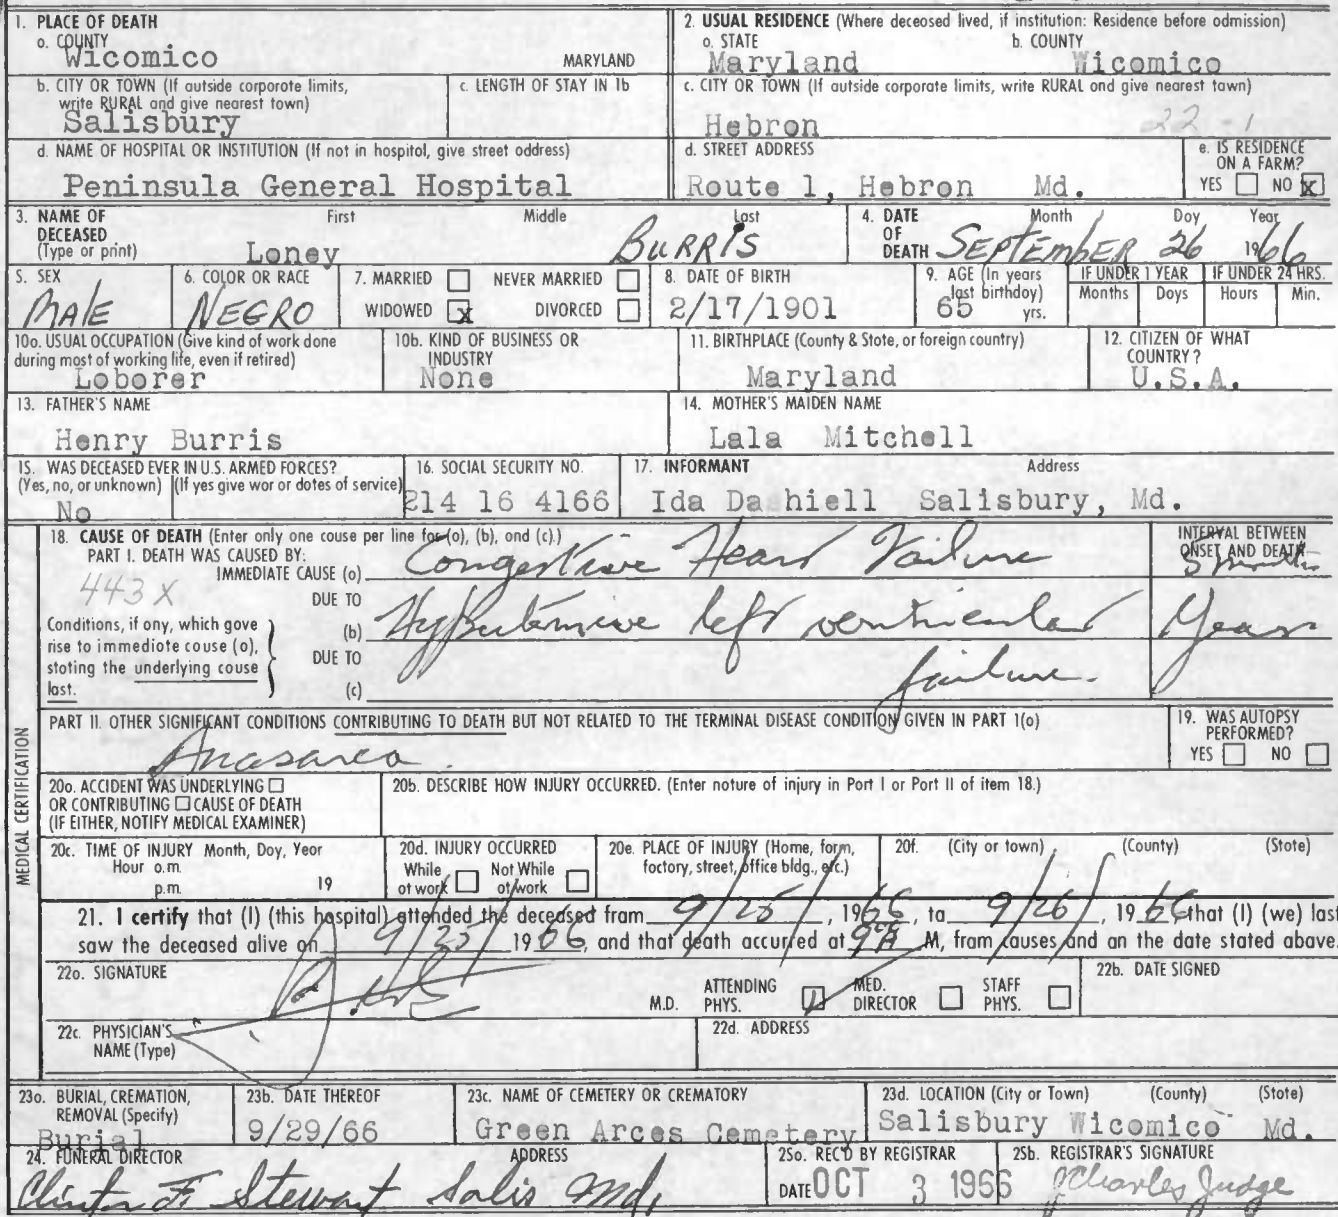 1. PLACE OF DEATH
a. COUNTY
Wicomico MARYLAND
2. USUAL RESIDENCE (Where deceased lived, if institution: Residence before admission)
a. STATE b. COUNTY
Maryland Wicomico
b. CITY OR TOWN (If outside corporate limits, write RURAL and give nearest town)
Salisbury
c. LENGTH OF STAY IN 1b
c. CITY OR TOWN (If outside corporate limits, write RURAL and give nearest town)
Hebron 22-1
d. NAME OF HOSPITAL OR INSTITUTION (If not in hospital, give street address)
Peninsula General Hospital
d. STREET ADDRESS
Route 1, Hebron Md.
e. IS RESIDENCE ON A FARM?
YES NO X
3. NAME OF DECEASED (Type or print)
First Middle Last
Loney BURRIS
4. DATE OF DEATH
Month Day Year
SEPTEMBER 26 1966
5. SEX
MALE
6. COLOR OR RACE
NEGRO
7. MARRIED NEVER MARRIED
WIDOWED X DIVORCED
8. DATE OF BIRTH
2/17/1901
9. AGE (In years last birthday)
65 yrs.
IF UNDER 1 YEAR
Months Days
IF UNDER 24 HRS.
Hours Min.
10a. USUAL OCCUPATION (Give kind of work done during most of working life, even if retired)
Loborer
10b. KIND OF BUSINESS OR INDUSTRY
None
11. BIRTHPLACE (County & State, or foreign country)
Maryland
12. CITIZEN OF WHAT COUNTRY?
U.S.A.
13. FATHER'S NAME
Henry Burris
14. MOTHER'S MAIDEN NAME
Lala Mitchell
15. WAS DECEASED EVER IN U.S. ARMED FORCES?
(Yes, no, or unknown) (If yes give war or dates of service)
No
16. SOCIAL SECURITY NO.
214 16 4166
17. INFORMANT Address
Ida Dashiell Salisbury, Md.
MEDICAL CERTIFICATION
18. CAUSE OF DEATH (Enter only one cause per line for (a), (b), and (c).)
PART I. DEATH WAS CAUSED BY:
IMMEDIATE CAUSE (a) Congestive Heart Failure
INTERVAL BETWEEN ONSET AND DEATH
5 months
443X
Conditions, if any, which gave rise to immediate cause (a), stating the underlying cause last.
DUE TO
(b) Hypertensive left ventricular Years
DUE TO failure.
(c)
PART II. OTHER SIGNIFICANT CONDITIONS CONTRIBUTING TO DEATH BUT NOT RELATED TO THE TERMINAL DISEASE CONDITION GIVEN IN PART 1(a)
Anasarca.
19. WAS AUTOPSY PERFORMED?
YES NO
20a. ACCIDENT WAS UNDERLYING
OR CONTRIBUTING CAUSE OF DEATH
(IF EITHER, NOTIFY MEDICAL EXAMINER)
20b. DESCRIBE HOW INJURY OCCURRED. (Enter nature of injury in Part I or Part II of item 18.)
20c. TIME OF INJURY Month, Day, Year
Hour a.m.
p.m. 19
20d. INJURY OCCURRED
While at work Not While at work
20e. PLACE OF INJURY (Home, farm, factory, street, office bldg., etc.)
20f. (City or town) (County) (State)
21. I certify that (I) (this hospital) attended the deceased from 9/25, 1966, to 9/26, 1966 that (I) (we) last
saw the deceased alive on 9/25 1966, and that death occurred at 9 A M, from causes and on the date stated above.
22a. SIGNATURE
M.D. ATTENDING PHYS. MED. DIRECTOR STAFF PHYS.
22b. DATE SIGNED
22c. PHYSICIAN'S NAME (Type)
22d. ADDRESS
23a. BURIAL, CREMATION, REMOVAL (Specify)
Burial
23b. DATE THEREOF
9/29/66
23c. NAME OF CEMETERY OR CREMATORY
Green Arces Cemetery
23d. LOCATION (City or Town) (County) (State)
Salisbury Wicomico Md.
24. FUNERAL DIRECTOR ADDRESS
Clinton F. Stewart Salis Md.
25a. REC'D BY REGISTRAR
DATE OCT 3 1966
25b. REGISTRAR'S SIGNATURE
J Charles Judge